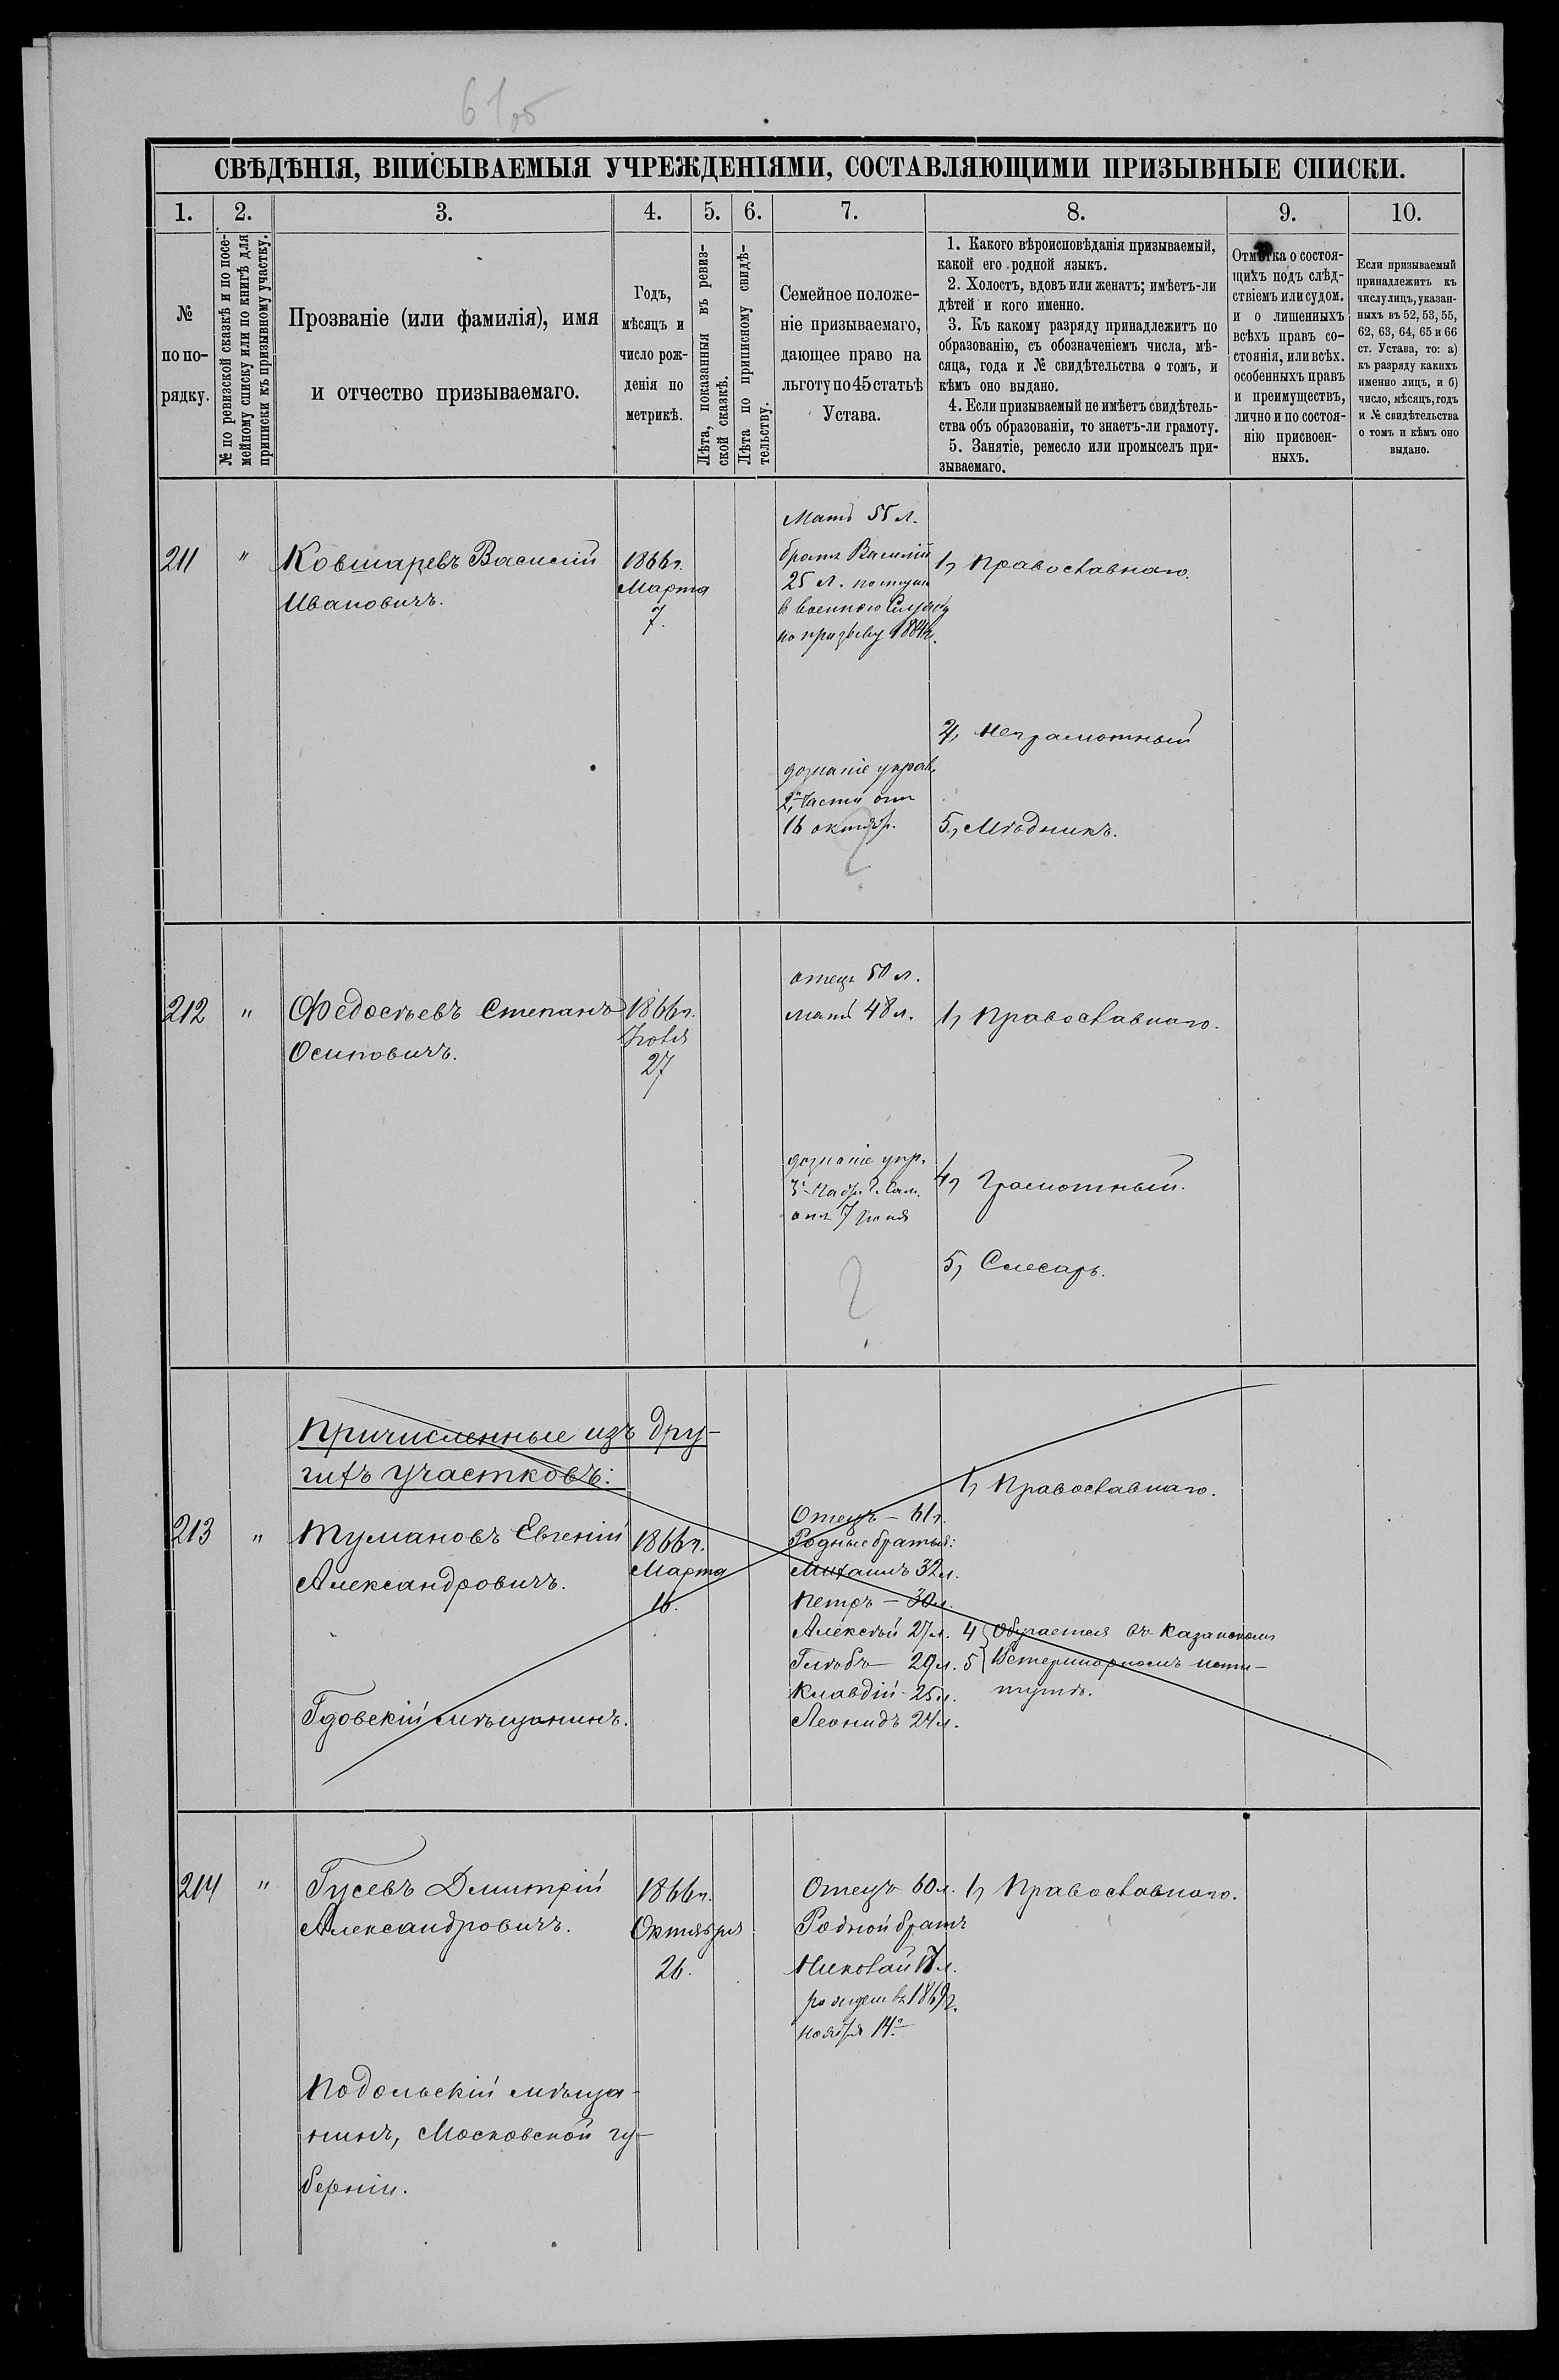 СВѢДѢНІЯ, ВПИСЫВАЕМЫЯ УЧРЕЖДЕНІЯМИ, СОСТАВЛЯЮЩИМИ ПРИЗЫВНЫЕ СПИСКИ.
1.
2.
3.
4.
5.
6.
7.
8.
9.
10.
№
по по-
рядку.
№ по ревизской сказкѣ и по посе-
мейному списку или по книгѣ для
приписки къ призывному участку.
Прозваніе (или фамилія), имя
и отчество призываемаго.
Годъ,
мѣсяцъ и
число рож-
денія по
метрикѣ.
Лѣта, показанныя въ ревиз-
ской сказкѣ.
Лѣта по приписному свидѣ-
тельству.
Семейное положе-
ніе призываемаго,
дающее право на
льготу по 45 статьѣ
Устава.
1. Какого вѣроисповѣданія призываемый,
какой его родной языкъ.
2. Холостъ, вдовъ или женатъ; имѣетъ-ли
дѣтей и кого именно.
3. Къ какому разряду принадлежитъ по
образованію, съ обозначеніемъ числа, мѣ-
сяца, года и № свидѣтельства о томъ, и
кѣмъ оно выдано.
4. Если призываемый не имѣетъ свидѣтель-
ства объ образованіи, то знаетъ-ли грамоту.
5. Занятіе, ремесло или промыселъ при-
зываемаго.
Отмѣтка о состоя-
щихъ подъ слѣд-
ствіемъ или судом.
и о лишенныхъ
всѣхъ правъ со-
стоянія, или всѣх.
особенныхъ правъ
и преимуществъ,
лично и по состоя-
нію присвоен-
ныхъ.
Если призываемый
принадлежитъ къ
числу лицъ, указан-
ныхъ въ 52, 53, 55,
62, 63, 64, 65 и 66
ст. Устава, то: а)
къ разряду какихъ
именно лицъ, и б)
число, мѣсяцъ, годъ
и № свидѣтельства
о томъ и кѣмъ оно
выдано.
211
"
Ковшаревъ Василій
Ивановичъ.
1866 г.
Марта
7.
Мать 55 л.
братъ Василій
25 л. поступ.
в военную Службу
по призыву 1884 г.
дознаніе управ.
2й части отъ
16 октябр.
1, Православнаго.
4, Неграмотный
5, Мѣдникъ.
212
"
Федосѣевъ Степанъ
Осиповичъ.
1866 г.
Іюля
27
отецъ 50 л.
мать 48 л.
дознаніе упр.
отъ 7 Іюня
1, Православнаго.
4, Грамотный.
5, Слесарь.
Причисленные изъ дру-
гихъ участковъ:
213
"
Тумановъ Евгеній
Александровичъ.
Гдовскій мѣщанинъ.
1866 г.
Марта
16.
Отецъ – 61 г.
Родные братья:
Михаилъ 32 л.
Петръ – 30 л.
Алексѣй 27 л.
Глѣбъ – 29 л.
Клавдій – 25 л.
Леонидъ 24 л.
1, Православнаго.
4 Обучается въ Казанскомъ
5 Ветеринарномъ инсти-
тутѣ.
214
"
Гусевъ Дмитрій
Александровичъ.
Подольскій мѣща-
нинъ, Московской гу-
берніи.
1866 г.
Октября
26.
Отецъ 60 л.
Родной братъ
Николай 17 л.
рожден въ 1869 г.
ноября 14го
1, Православнаго.